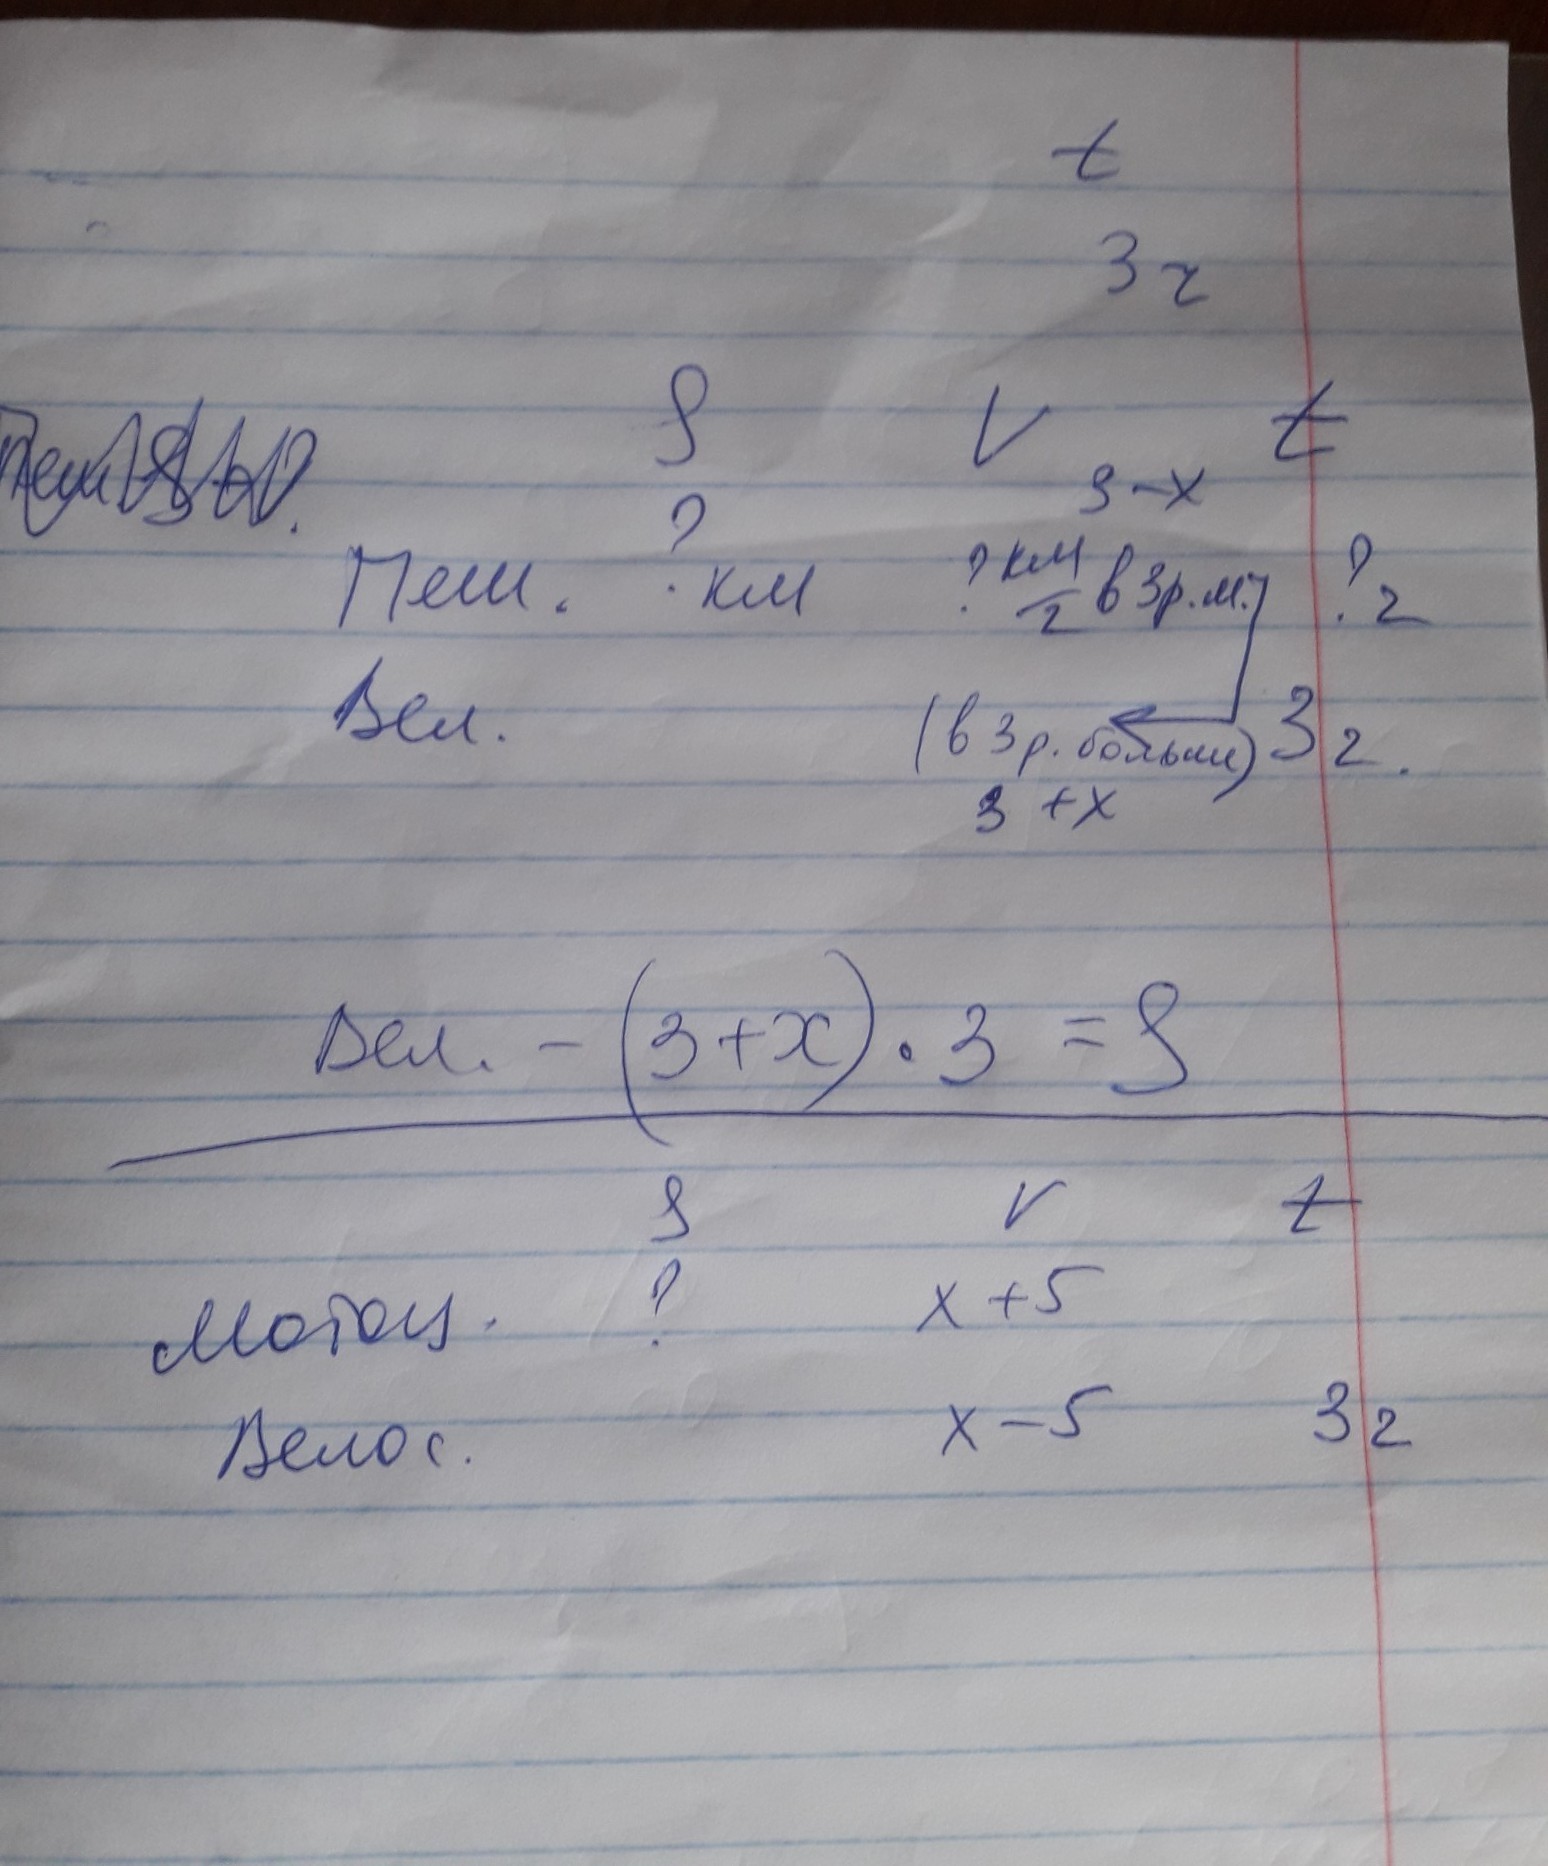 t
3 ч
S V t
3-x
Пеш. ? км ? км/ч в 3 р. м. ? ч
Вел. (в 3 р. больше) 3 ч.
3 + x
Вел. - (3+x) · 3 = S
S V t
Мотоц. ? x + 5
Велос. x - 5 3 ч